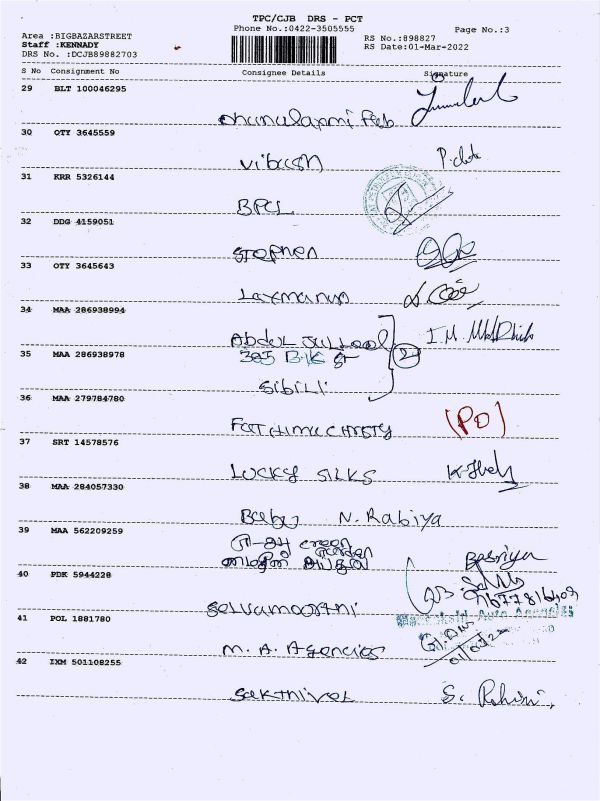 TPC/CJB DRS - PCT
Phone No.:0422-3505555
Page No.:3
Area :BIGBAZARSTREET
RS No.:898827
Staff :KENNADY
RS Date:01-Mar-2022
DRS No. :DCJB89882703
S No Consignment No Consignee Details Signature
29 BLT 100046295
Dhanalaxmi Feb
30 QTY 3645559
Vibush
31 KRR 5326144
BPCL
32 DDG 4159051
Stephen
33 OTY 3645643
Laxmanan
34 MAA 286938994
Abdul
35 MAA 286938978
385 B.K St
2
Sibili
36 MAA 279784780
Fathima (PO)
37 SRT 14578576
Lucky Silks
38 MAA 284057330
Babu N. Rabiya
39 MAA 562209259
green garden
Basriya
40 PDK 5944228
Selvamoorthi
41 POL 1881780
Auto Agencies
M. A. Agencies
01/03/22
42 IXM 501108255
Sakthivel S. Rohini